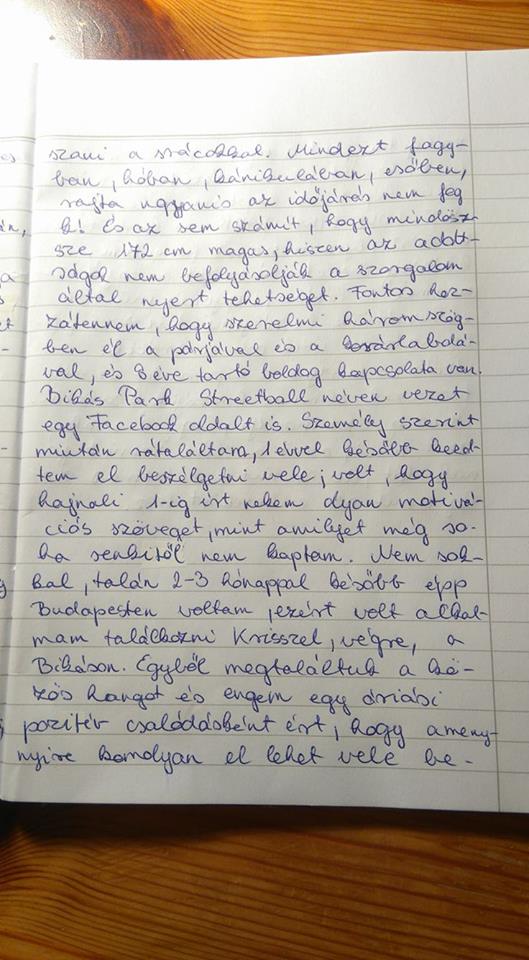 szani a srácokkal. Mindezt fagy-
ban, hóban, kánikulában, esőben,
rajta ugyanis az időjárás nem fog
ki! És az sem számít, hogy mindösz-
sze 172 cm magas, hiszen az adott-
ságok nem befolyásolják a szorgalom
által nyert tehetséget. Fontos hoz-
zátennem, hogy szerelmi háromszög-
ben él a párjával és a kosárlabdá-
val, és 8 éve tartó boldog kapcsolata van.
Bikás Park Streetball néven vezet
egy Facebook oldalt is. Személy szerint
miután rátaláltam, 1 évvel később kezd-
tem el beszélgetni vele; volt, hogy
hajnali 1-ig írt nekem olyan motivá-
ciós szöveget, mint amilyet még so-
ha senkitől nem kaptam. Nem sok-
kal, talán 2-3 hónappal később épp
Budapesten voltam, ezért volt alkal-
mam találkozni Krisszel, végre, a
Bikáson. Egyből megtaláltuk a kö-
zös hangot és engem egy óriási
pozitív csalódásként ért, hogy ameny-
nyire komolyan el lehet vele be-